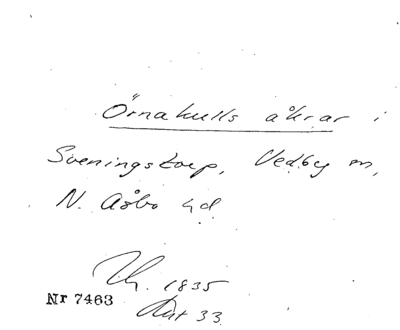 Örnakulls åkrar i
Sveningstorp, Vedby sn,
N. Åsbo hd
1835
Nr 7463
Akt 33